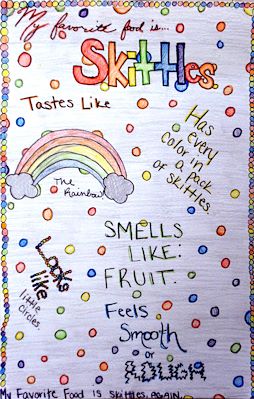 My favorite food is...
Skittles.
Tastes Like
The Rainbow!
Has
every
color in
a pack
of skittles.
SMELLS
LIKE:
FRUIT.
Looks
like
little
circles.
Feels
Smooth
or
ROUGH
My Favorite Food is Skittles. AGAIN.